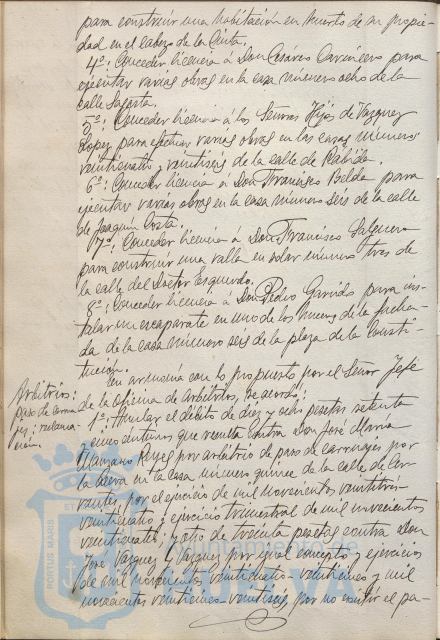 para construir una habitación en huerto de su propie-
dad en el cabezo de la Cinta.
4º: Conceder licencia á Don Cesáreo Carcinero para
ejecutar varias obras en la casa número ocho de la
calle Sagasta.
5º: Conceder licencia á los Señores Hijos de Vazquez
Lopez para efectuar varias obras en las casas números
veinticuatro y veintiseis de la calle de Rábida.
6º: Conceder licencia á Don Francisco Belda para
ejecutar varias obras en la casa número seis de la calle
de Joaquín Costa.
7º: Conceder licencia á Don Francisco
para construir una valla en solar número tres de
la calle del Doctor Esquerdo.
8º: Conceder licencia á Don Pedro Garrido para ins-
talar un escaparate en uno de los huecos de la facha-
da de la casa número seis de la plaza de la Consti-
tución.
Arbitrios:
paso de carrua
jes: reclama-
ción.
En armonía con lo propuesto por el Señor Jefe
de la oficina de arbitrios, se acordó:
1º: Anular el débito de diez y ocho pesetas setenta
céntimos que resulta contra Don José María
Manzano Reyes por arbitrio de paso de carruajes por
la acera en la casa número quince de la calle de Cer-
vantes, por el ejercicio de mil novecientos veintitrés-
veinticuatro y ejercicio trimestral de mil novecientos
veinticuatro; y otro de treinta pesetas contra Don
José Vazquez y Vazquez por igual concepto y ejercicios
de mil novecientos veinticuatro-veinticinco y mil
novecientos veinticinco-veintiseis, por no existir el pa-
PORTUS MARIS ET